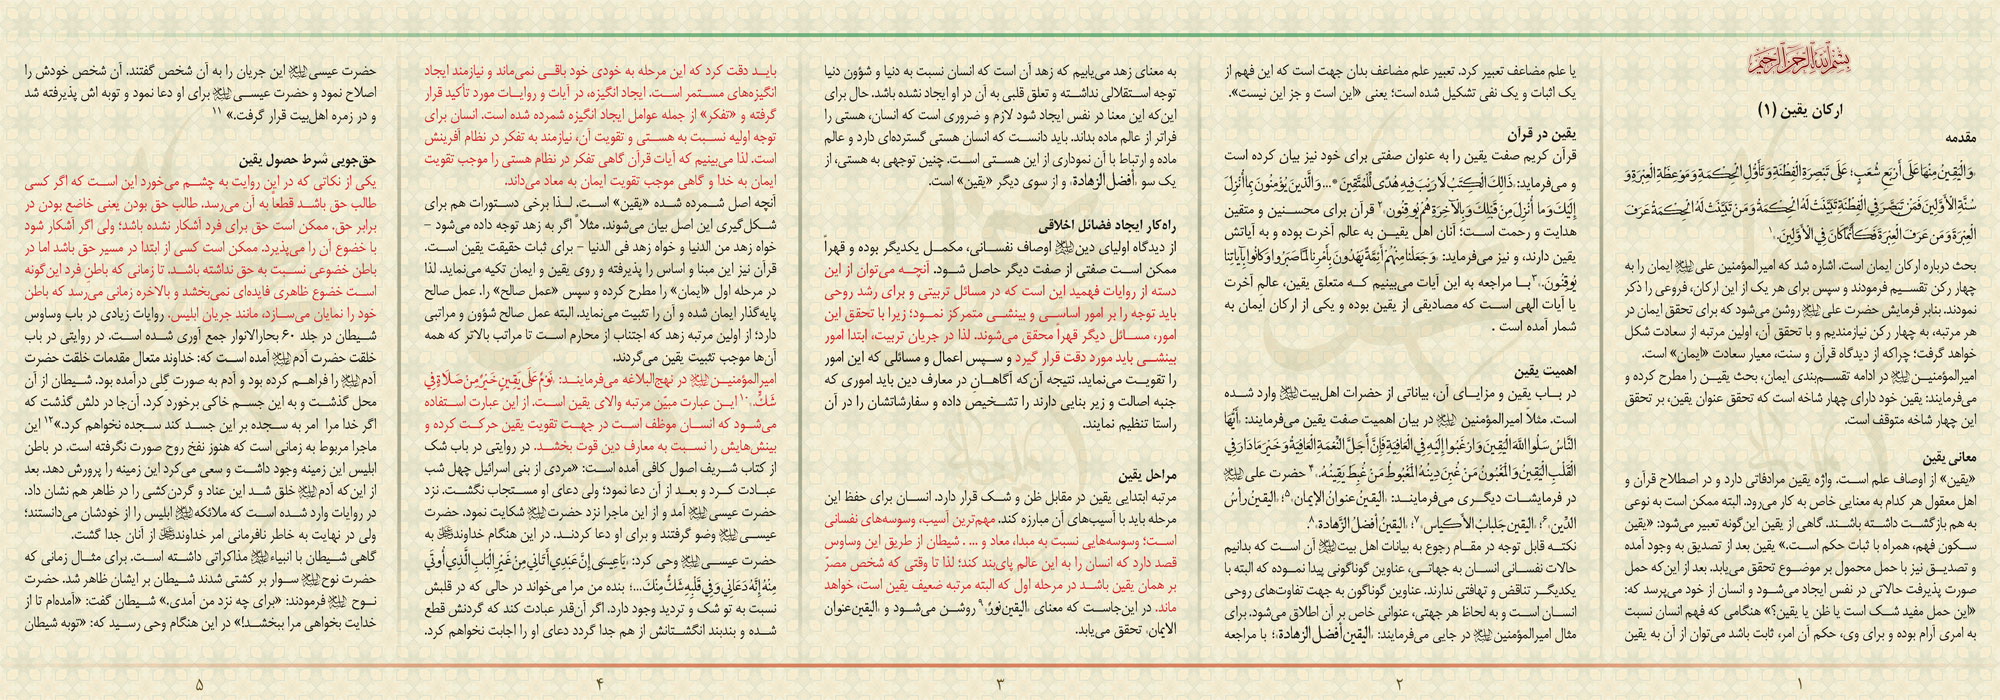 بِسْمِ اللَّهِ الرَّحْمَنِ الرَّحِيمِ
ارکان یقین (۱)
مقدمه
«وَ الْیَقِینُ مِنْهَا عَلَى أَرْبَعِ شُعَبٍ؛ عَلَى تَبْصِرَةِ الْفِطْنَةِ وَ تَأَوُّلِ الْحِكْمَةِ وَ مَوْعِظَةِ الْعِبْرَةِ وَ
سُنَّةِ الْأَوَّلِينَ فَمَنْ تَبَصَّرَ فِي الْفِطْنَةِ تَبَيَّنَتْ لَهُ الْحِكْمَةُ وَ مَنْ تَبَيَّنَتْ لَهُ الْحِكْمَةُ عَرَفَ
الْعِبْرَةَ وَ مَنْ عَرَفَ الْعِبْرَةَ فَكَأَنَّمَا كَانَ فِي الْأَوَّلِينَ.»۱
بحث درباره ارکان ایمان است. اشاره شد که امیرالمؤمنین علی ایمان را به
چهار رکن تقسیم فرمودند و سپس برای هر یک از این ارکان، فروعی را ذکر
نمودند. بنابر فرمایش حضرت علی روشن می‌شود که برای تحقق ایمان در
هر مرتبه، به چهار رکن نیازمندیم و با تحقق آن، اولین مرتبه از سعادت شکل
خواهد گرفت؛ چراکه از دیدگاه قرآن و سنت، معیار سعادت «ایمان» است.
امیرالمؤمنین در ادامه تقسیم‌بندی ایمان، بحث یقین را مطرح کرده و
می‌فرمایند: یقین خود دارای چهار شاخه است که تحقق عنوان یقین، بر تحقق
این چهار شاخه متوقف است.
معانی یقین
«یقین» از اوصاف علم است. واژه یقین مرادفاتی دارد و در اصطلاح قرآن و
اهل معقول هر کدام به معنایی خاص به کار می‌رود. البته ممکن است به نوعی
به هم بازگشت داشته باشند. گاهی از یقین این‌گونه تعبیر می‌شود: «یقین
سکون فهم، همراه با ثبات حکم است.» یقین بعد از تصدیق به وجود آمده
و تصدیق نیز با حمل محمول بر موضوع تحقق می‌یابد. بعد از این‌که حمل
صورت پذیرفت حالاتی در نفس ایجاد می‌شود و انسان از خود می‌پرسد که:
«این حمل مفید شک است یا ظن یا یقین؟» هنگامی که فهم انسان نسبت
به امری آرام بوده و برای وی، حکم آن امر، ثابت باشد می‌توان از آن به یقین
۱
یا علم مضاعف تعبیر کرد. تعبیر علم مضاعف بدان جهت است که این فهم از
یک اثبات و یک نفی تشکیل شده است؛ یعنی «این است و جز این نیست».
یقین در قرآن
قرآن کریم صفت یقین را به عنوان صفتی برای خود نیز بیان کرده است
و می‌فرماید: «ذَالِكَ الْكِتَبُ لَا رَيْبَ فِيهِ هُدًى لِّلْمُتَّقِينَ *... وَ الَّذِينَ يُؤْمِنُونَ بِمَا أُنْزِلَ
إِلَيْكَ وَ مَا أُنْزِلَ مِنْ قَبْلِكَ وَ بِالْآخِرَةِ هُمْ يُوقِنُونَ.»۲ قرآن برای محسنین و متقین
هدایت و رحمت است؛ آنان اهل یقین به عالم آخرت بوده و به آیاتش
یقین دارند، و نیز می‌فرماید: «وَ جَعَلْنَا مِنْهُمْ أَئِمَّةً يَهْدُونَ بِأَمْرِنَا لَمَّا صَبَرُوا وَ كَانُوا بِآيَاتِنَا
يُوقِنُونَ.»۳ با مراجعه به این آیات می‌بینیم که متعلق یقین، عالم آخرت
یا آیات الهی است که مصادیقی از یقین بوده و یکی از ارکان ایمان به
شمار آمده است .
اهمیت یقین
در باب یقین و مزایای آن، بیاناتی از حضرات اهل‌بیت وارد شده
است. مثلاً امیرالمؤمنین در بیان اهمیت صفت یقین می‌فرمایند: «أَيُّهَا
النَّاسُ سَلُوا اللَّهَ الْيَقِينَ وَ ارْغَبُوا إِلَيْهِ فِي الْعَافِيَةِ فَإِنَّ أَجَلَّ النِّعْمَةِ الْعَافِيَةُ وَ خَيْرَ مَا دَارَ فِي
الْقَلْبِ الْيَقِينُ وَ الْمَغْبُونُ مَنْ غُبِنَ دِينَهُ الْمَغْبُوطُ مَنْ غُبِطَ يَقِينُهُ.»۴ حضرت علی
در فرمایشات دیگری می‌فرمایند: «الیقینُ عنوانُ الإیمان.»۵؛ «الیقینُ رأسُ
الدِّین.»۶؛ «الیقین جلبابُ الأکیاس.»۷؛ «الیقینُ أفضلُ الزَّهادة.»۸
نکته قابل توجه در مقام رجوع به بیانات اهل بیت آن است که بدانیم
حالات نفسانی انسان به جهاتی، عناوین گوناگونی پیدا نموده که البته با
یکدیگر تناقض و تهافتی ندارند. عناوین گوناگون به جهت تفاوت‌های روحی
انسان است و به لحاظ هر جهتی، عنوانی خاص بر آن اطلاق می‌شود. برای
مثال امیرالمؤمنین در جایی می‌فرمایند: «الیقین أفضل الزَهادة.»؛ با مراجعه
۲
به معنای زهد می‌یابیم که زهد آن است که انسان نسبت به دنیا و شؤون دنیا
توجه استقلالی نداشته و تعلق قلبی به آن در او ایجاد نشده باشد. حال برای
این‌که این معنا در نفس ایجاد شود لازم و ضروری است که انسان، هستی را
فراتر از عالم ماده بداند. باید دانست که انسان هستی گسترده‌ای دارد و عالم
ماده و ارتباط با آن نموداری از این هستی است. چنین توجهی به هستی، از
یک سو «أفضل الزهادة»، و از سوی دیگر «یقین» است.
راه‌کار ایجاد فضائل اخلاقی
از دیدگاه اولیای دین اوصاف نفسانی، مکمل یکدیگر بوده و قهراً
ممکن است صفتی از صفت دیگر حاصل شود. آنچه می‌توان از این
دسته از روایات فهمید این است که در مسائل تربیتی و برای رشد روحی
باید توجه را بر امور اساسی و بینشی متمرکز نمود؛ زیرا با تحقق این
امور، مسائل دیگر قهراً محقق می‌شوند. لذا در جریان تربیت، ابتدا امور
بینشی باید مورد دقت قرار گیرد و سپس اعمال و مسائلی که این امور
را تقویت می‌نماید. نتیجه آن‌که آگاهان در معارف دین باید اموری که
جنبه اصالت و زیر بنایی دارند را تشخیص داده و سفارشاتشان را در آن
راستا تنظیم نمایند.
مراحل یقین
مرتبه ابتدایی یقین در مقابل ظن و شک قرار دارد. انسان برای حفظ این
مرحله باید با آسیب‌های آن مبارزه کند. مهم‌ترین آسیب، وسوسه‌های نفسانی
است؛ وسوسه‌هایی نسبت به مبدا، معاد و ... . شیطان از طریق این وساوس
قصد دارد که انسان را به این عالم پای‌بند کند؛ لذا تا وقتی که شخص مصرّ
بر همان یقین باشد در مرحله اول که البته مرتبه ضعیف یقین است، خواهد
ماند. در این‌جاست که معنای «الیقین نورٌ.»۹ روشن می‌شود و «الیقین عنوان
الایمان.» تحقق می‌یابد.
۳
باید دقت کرد که این مرحله به خودی خود باقی نمی‌ماند و نیازمند ایجاد
انگیزه‌های مستمر است. ایجاد انگیزه، در آیات و روایات مورد تأکید قرار
گرفته و «تفکر» از جمله عوامل ایجاد انگیزه شمرده شده است. انسان برای
توجه اولیه نسبت به هستی و تقویت آن، نیازمند به تفکر در نظام آفرینش
است. لذا می‌بینیم که آیات قرآن گاهی تفکر در نظام هستی را موجب تقویت
ایمان به خدا و گاهی موجب تقویت ایمان به معاد می‌داند.
آنچه اصل شمرده شده «یقین» است. لذا برخی دستورات هم برای
شکل‌گیری این اصل بیان می‌شوند. مثلاً اگر به زهد توجه داده می‌شود –
خواه زهد من الدنیا و خواه زهد فی الدنیا – برای ثبات حقیقت یقین است.
قرآن نیز این مبنا و اساس را پذیرفته و روی یقین و ایمان تکیه می‌نماید. لذا
در مرحله اول «ایمان» را مطرح کرده و سپس «عمل صالح» را. عمل صالح
پایه‌گذار ایمان شده و آن را تثبیت می‌نماید. البته عمل صالح شؤون و مراتبی
دارد؛ از اولین مرتبه زهد که اجتناب از محارم است تا مراتب بالاتر که همه
آن‌ها موجب تثبیت یقین می‌گردند.
امیرالمؤمنین در نهج‌البلاغه می‌فرمایند: «نَوْمٌ عَلَى يَقِينٍ خَيْرٌ مِنْ صَلَاةٍ فِي
شَكٍّ.»۱۰ این عبارت مبیّن مرتبه والای یقین است. از این عبارت استفاده
می‌شود که انسان موظف است در جهت تقویت یقین حرکت کرده و
بینش‌هایش را نسبت به معارف دین قوت بخشد. در روایتی در باب شک
از کتاب شریف اصول کافی آمده است: «مردی از بنی اسرائیل چهل شب
عبادت کرد و بعد از آن دعا نمود؛ ولی دعای او مستجاب نگشت. نزد
حضرت عیسی آمد و از این ماجرا نزد حضرت شکایت نمود. حضرت
عیسی وضو گرفتند و برای او دعا کردند. در این هنگام خداوند به
حضرت عیسی وحی کرد: «يَا عِيسَى إِنَّ عَبْدِي أَتَانِي مِنْ غَيْرِ الْبَابِ الَّذِي أُوتَى
مِنْهُ إِنَّهُ دَعَانِي وَ فِي قَلْبِهِ شَكٌّ مِنْكَ...»؛ بنده من مرا می‌خواند در حالی که در قلبش
نسبت به تو شک و تردید وجود دارد. اگر آن‌قدر عبادت کند که گردنش قطع
شده و بندبند انگشتانش از هم جدا گردد دعای او را اجابت نخواهم کرد.
۴
حضرت عیسی این جریان را به آن شخص گفتند. آن شخص خودش را
اصلاح نمود و حضرت عیسی برای او دعا نمود و توبه اش پذیرفته شد
و در زمره اهل‌بیت قرار گرفت.»۱۱
حق‌جویی شرط حصول یقین
یکی از نکاتی که در این روایت به چشم می‌خورد این است که اگر کسی
طالب حق باشد قطعاً به آن می‌رسد. طالب حق بودن یعنی خاضع بودن در
برابر حق. ممکن است حق برای فرد آشکار نشده باشد؛ ولی اگر آشکار شود
با خضوع آن را می‌پذیرد. ممکن است کسی از ابتدا در مسیر حق باشد اما در
باطن خضوعی نسبت به حق نداشته باشد. تا زمانی که باطنِ فرد این‌گونه
است خضوع ظاهری فایده‌ای نمی‌بخشد و بالاخره زمانی می‌رسد که باطن
خود را نمایان می‌سازد، مانند جریان ابلیس. روایات زیادی در باب وساوس
شیطان در جلد ۶۰ بحارالانوار جمع آوری شده است. در روایتی در باب
خلقت حضرت آدم آمده است که: خداوند متعال مقدمات خلقت حضرت
آدم را فراهم کرده بود و آدم به صورت گِلی درآمده بود. شیطان از آن
محل گذشت و به این جسم خاکی برخورد کرد. آن‌جا در دلش گذشت که
اگر خدا مرا امر به سجده بر این جسد کند سجده نخواهم کرد.»۱۲ این
ماجرا مربوط به زمانی است که هنوز نفخ روح صورت نگرفته است. در باطن
ابلیس این زمینه وجود داشت و سعی می‌کرد این زمینه را پرورش دهد. بعد
از این‌که آدم خلق شد این عناد و گردن‌کشی را در ظاهر هم نشان داد.
در روایات وارد شده است که ملائکه ابلیس را از خودشان می‌دانستند؛
ولی در نهایت به خاطر نافرمانی امر خداوند از آنان جدا گشت.
گاهی شیطان با انبیاء مذاکراتی داشته است. برای مثال زمانی که
حضرت نوح سوار بر کشتی شدند شیطان بر ایشان ظاهر شد. حضرت
نوح فرمودند: «برای چه نزد من آمدی.» شیطان گفت: «آمده‌ام تا از
خدایت بخواهی مرا ببخشد!» در این هنگام وحی رسید که: «توبه شیطان
۵